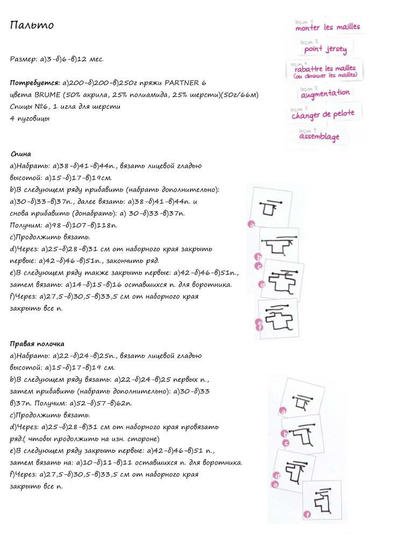 Пальто
Размер: а)3-б)6-в)12 мес.
Потребуется: а)200-б)200-в)250г пряжи PARTNER 6
цвета BRUME (50% акрила, 25% полиамида, 25% шерсти)(50г/66м)
Спицы №6, 1 игла для шерсти
4 пуговицы
monter les mailles
point jersey
rabattre les mailles
(ou diminuer les mailles)
augmentation
changer de pelote
assemblage
Спина
а)Набрать: а)38-б)41-в)44п., вязать лицевой гладью
высотой: а)15-б)17-в)19см.
b)В следующем ряду прибавить (набрать дополнительно):
а)30-б)33-в)37п., далее вязать: а)38-б)41-в)44п. и
снова прибавить (донабрать): а) 30-б)33-в)37п.
Получим: а)98-б)107-в)118п.
c)Продолжить вязать.
d)Через: а)25-б)28-в)31 см от наборного края закрыть
первые: а)42-б)46-в)51п., закончить ряд.
e)В следующем ряду также закрыть первые: а)42-б)46-в)51п.,
затем вязать: а)14-б)15-в)16 оставшихся п. для воротника.
f)Через: а)27,5-б)30,5-в)33,5 см от наборного края
закрыть все п.
Правая полочка
а)Набрать: а)22-б)24-в)25п., вязать лицевой гладью
высотой: а)15-б)17-в)19 см.
b)В следующем ряду вязать: а)22-б)24-в)25 первых п.,
затем прибавить (набрать дополнительно): а)30-б)33
в)37п. Получим: а)52-б)57-в)62п.
c)Продолжить вязать.
d)Через: а)25-б)28-в)31 см от наборного края провязать
ряд.( чтобы продолжить на изн. стороне)
e)В следующем ряду закрыть первые: а)42-б)46-в)51 п.,
затем вязать на: а)10-б)11-в)11 оставшихся п. для воротника.
f)Через: а)27,5-б)30,5-в)33,5 см от наборного края
закрыть все п.